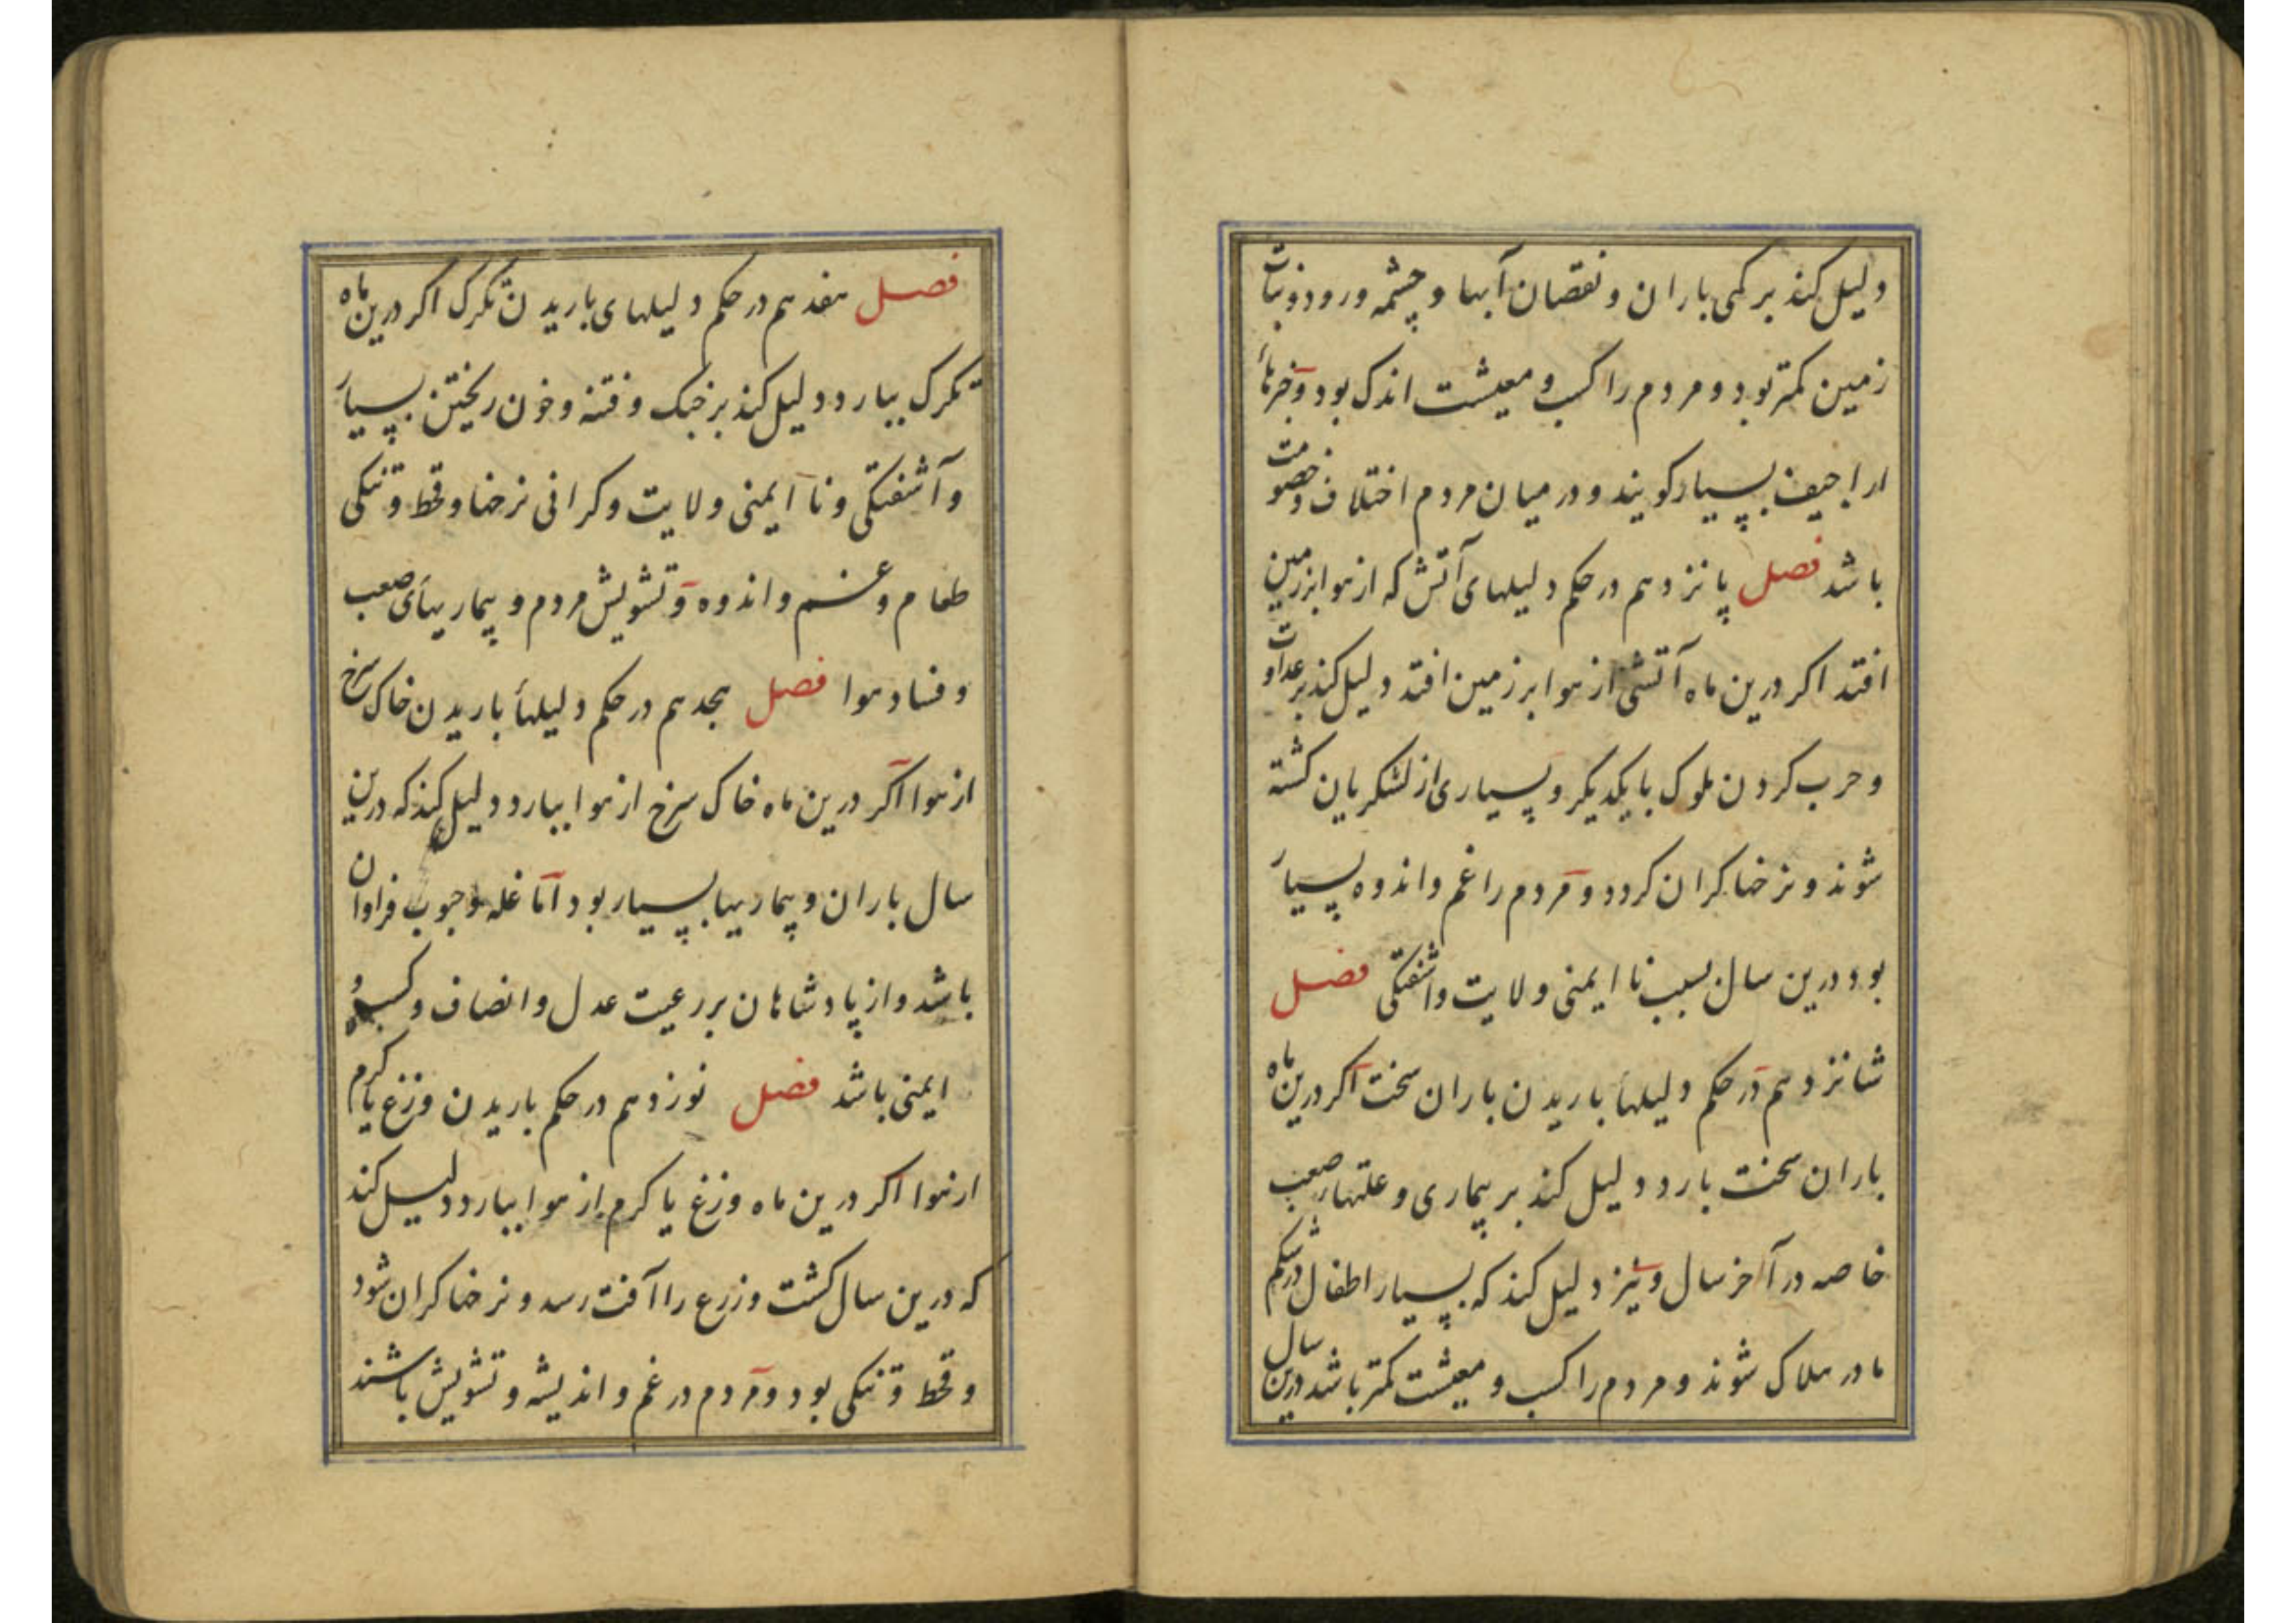 دلیل کند بر کمی باران و نقصان آبها و چشمه و رود و نبات
زمین کمتر بود و مردم را کسب و معیشت اندک بود و خبرهاء
اراجیف بسیار کویند و در میان مردم اختلاف و خصومت
باشد فصل پانزدهم در حکم دلیلهای آتش که از هوا بر زمین
افتد اکر درین ماه آتشی از هوا بر زمین افتد دلیل کند بر عداوت
و حرب کردن ملوک با یکدیکر و بسیاری از لشکریان کشته
شوند و نرخها کران کردد و مردم را غم و اندوه بسیار
بود درین سال بسبب نا ایمنی ولایت و آشفتکی فصل
شانزدهم در حکم دلیلهاء باریدن باران سخت اکر درین ماه
باران سخت بارد دلیل کند بر بیماری و علتهار صعب
خاصه در آخر سال و نیز دلیل کند که بسیار اطفال در شکم
مادر هلاک شوند و مردم را کسب و معیشت کمتر باشد درین سال
فصل هفدهم در حکم دلیلهای باریدن تکرک اکر درین ماه
تکرک ببارد دلیل کند بر جنک و فتنه و خون ریختن بسیار
و آشفتکی و نا ایمنی ولایت و کرانی نرخها و قحط و تنکی
طعام و غم و اندوه و تشویش مردم و بیماریهای صعب
و فساد هوا فصل هجدهم در حکم دلیلهاء باریدن خاک سرخ
از هوا اکر درین ماه خاک سرخ از هوا ببارد دلیل کند که درین
سال باران و بیماریها بسیار بود اما غله و حبوب فراوان
باشد و از پادشاهان بر رعیت عدل و انصاف و کسب و
ایمنی باشد فصل نوزدهم در حکم باریدن وزغ یا کرم
از هوا اکر درین ماه وزغ یا کرم از هوا ببارد دلیل کند
که درین سال کشت و زرع را آفت رسد و نرخها کران شود
و قحط و تنکی بود و مردم در غم و اندیشه و تشویش باشند